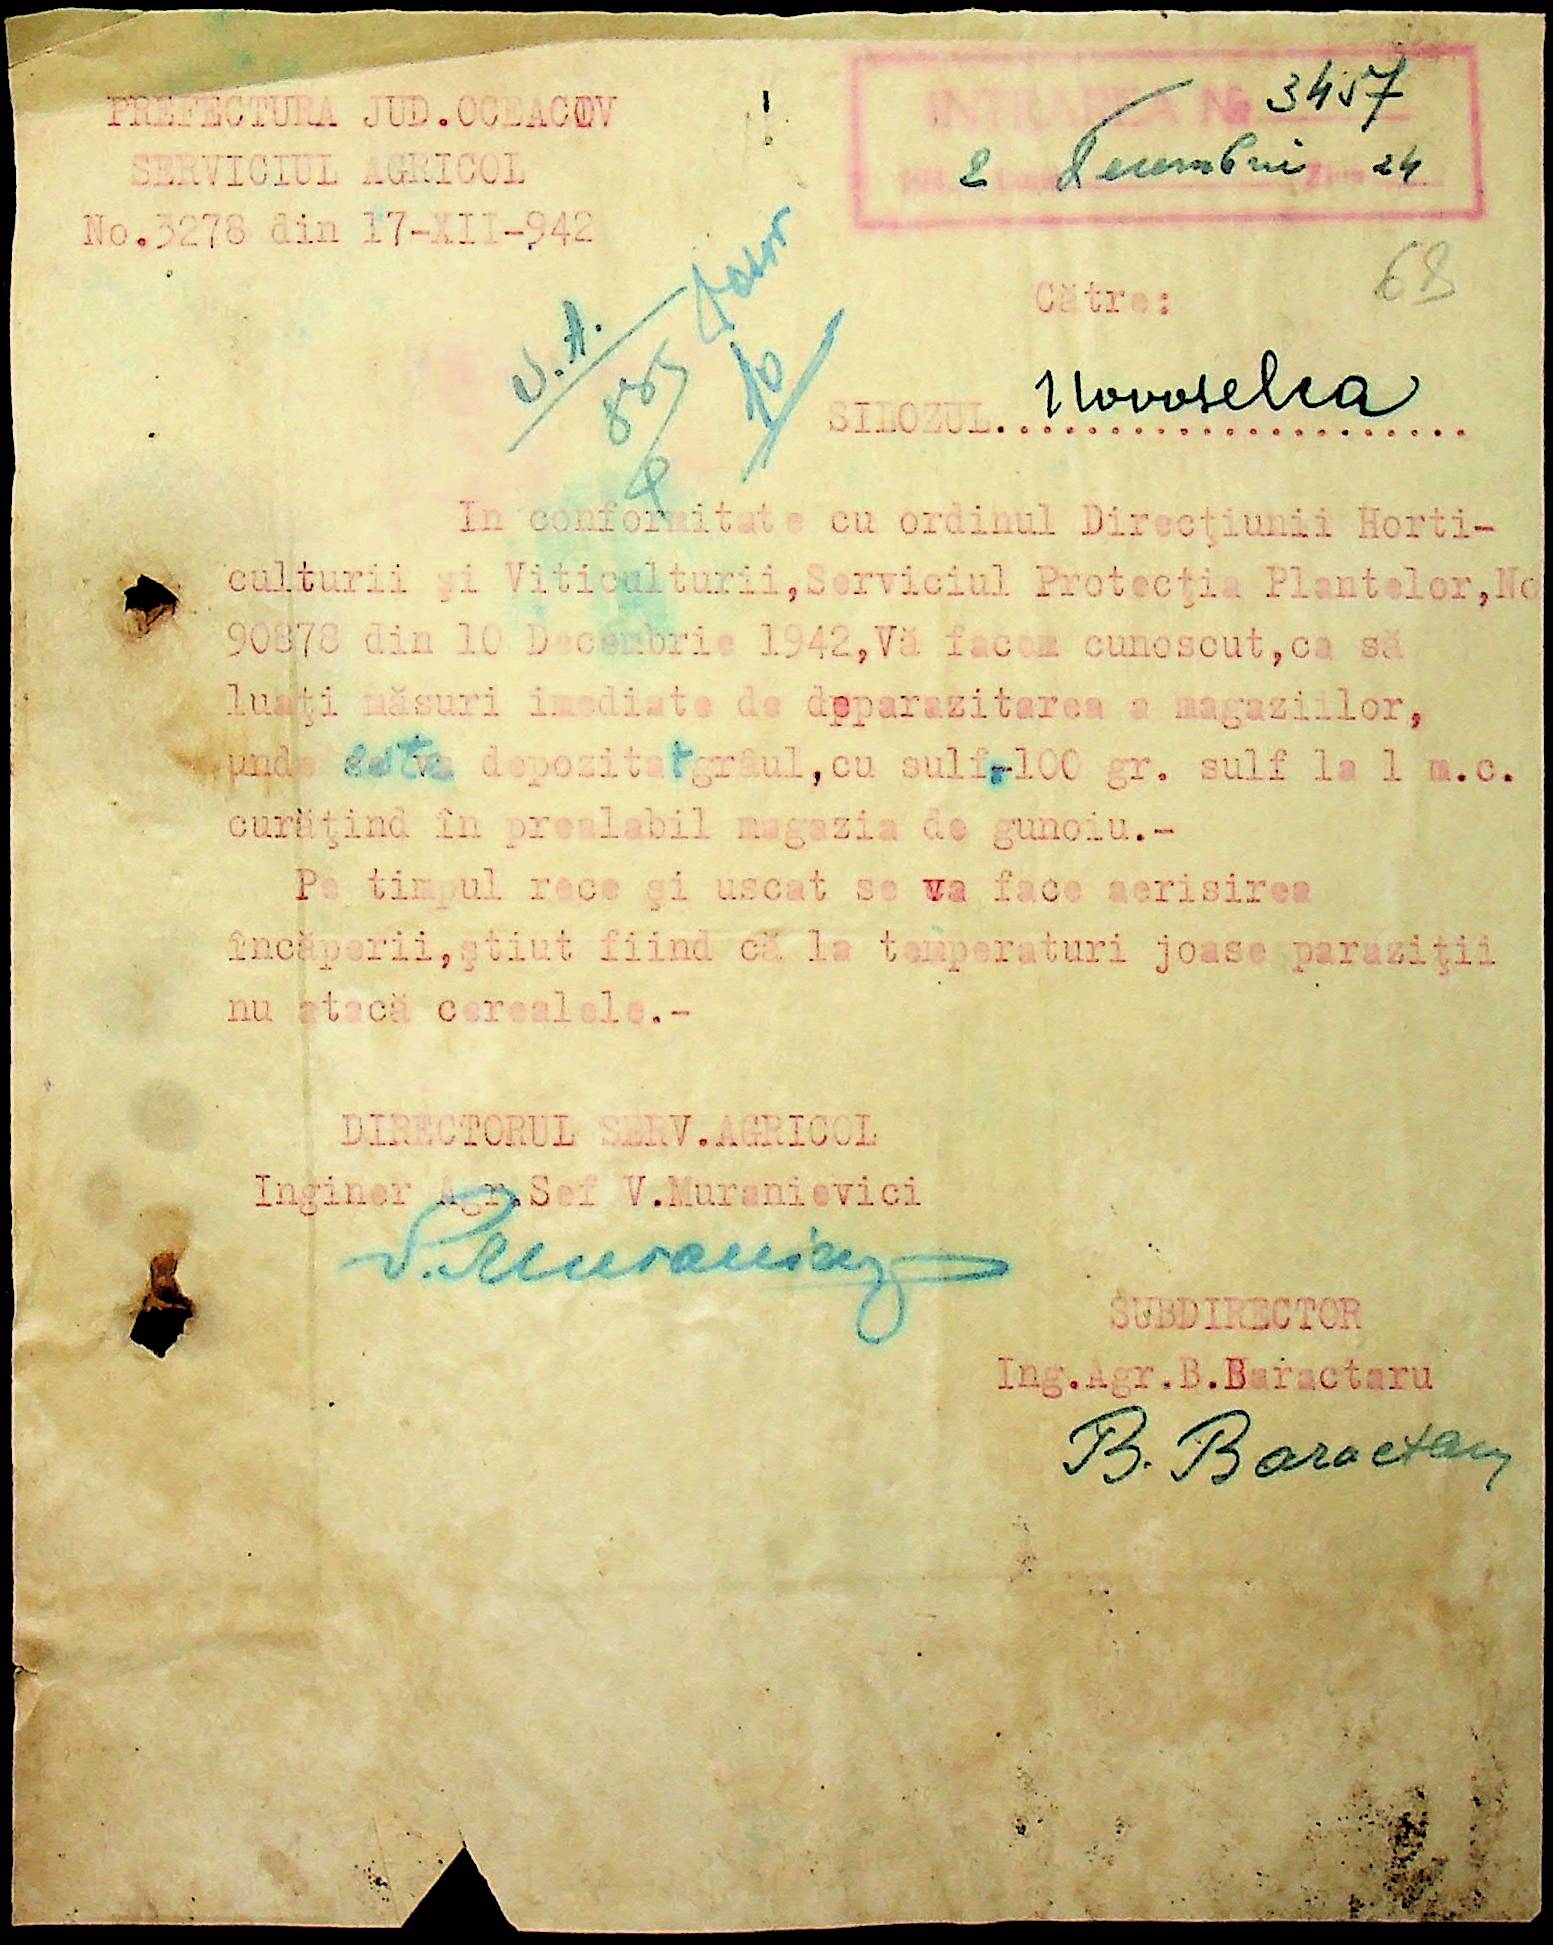 PREFECTURA JUD.OCEACOV
SERVICIUL AGRICOL
No.3278 din 17-XII-942
INTRAREA No 3457
2 Decembrie 24
69
Către:
SILOZUL. Novoselca
V.A.
10
In conformitate cu ordinul Direcţiunii Horti-
culturii şi Viticulturii,Serviciul Protecţia Plantelor,No
90878 din 10 Decembrie 1942,Vă facem cunoscut,ca să
luaţi măsuri imediate de deparazitarea a magaziilor,
unde este depozitat grâul,cu sulf-100 gr. sulf la 1 m.c.
curăţind în prealabil magazia de gunoiu.-
Pe timpul rece şi uscat se va face aerisirea
încăperii,ştiut fiind că la temperaturi joase paraziţii
nu atacă cerealele.-
DIRECTORUL SERV.AGRICOL
Inginer Agr.Sef V.Muranievici
SUBDIRECTOR
Ing.Agr.B.Baractaru
B. Baractaru